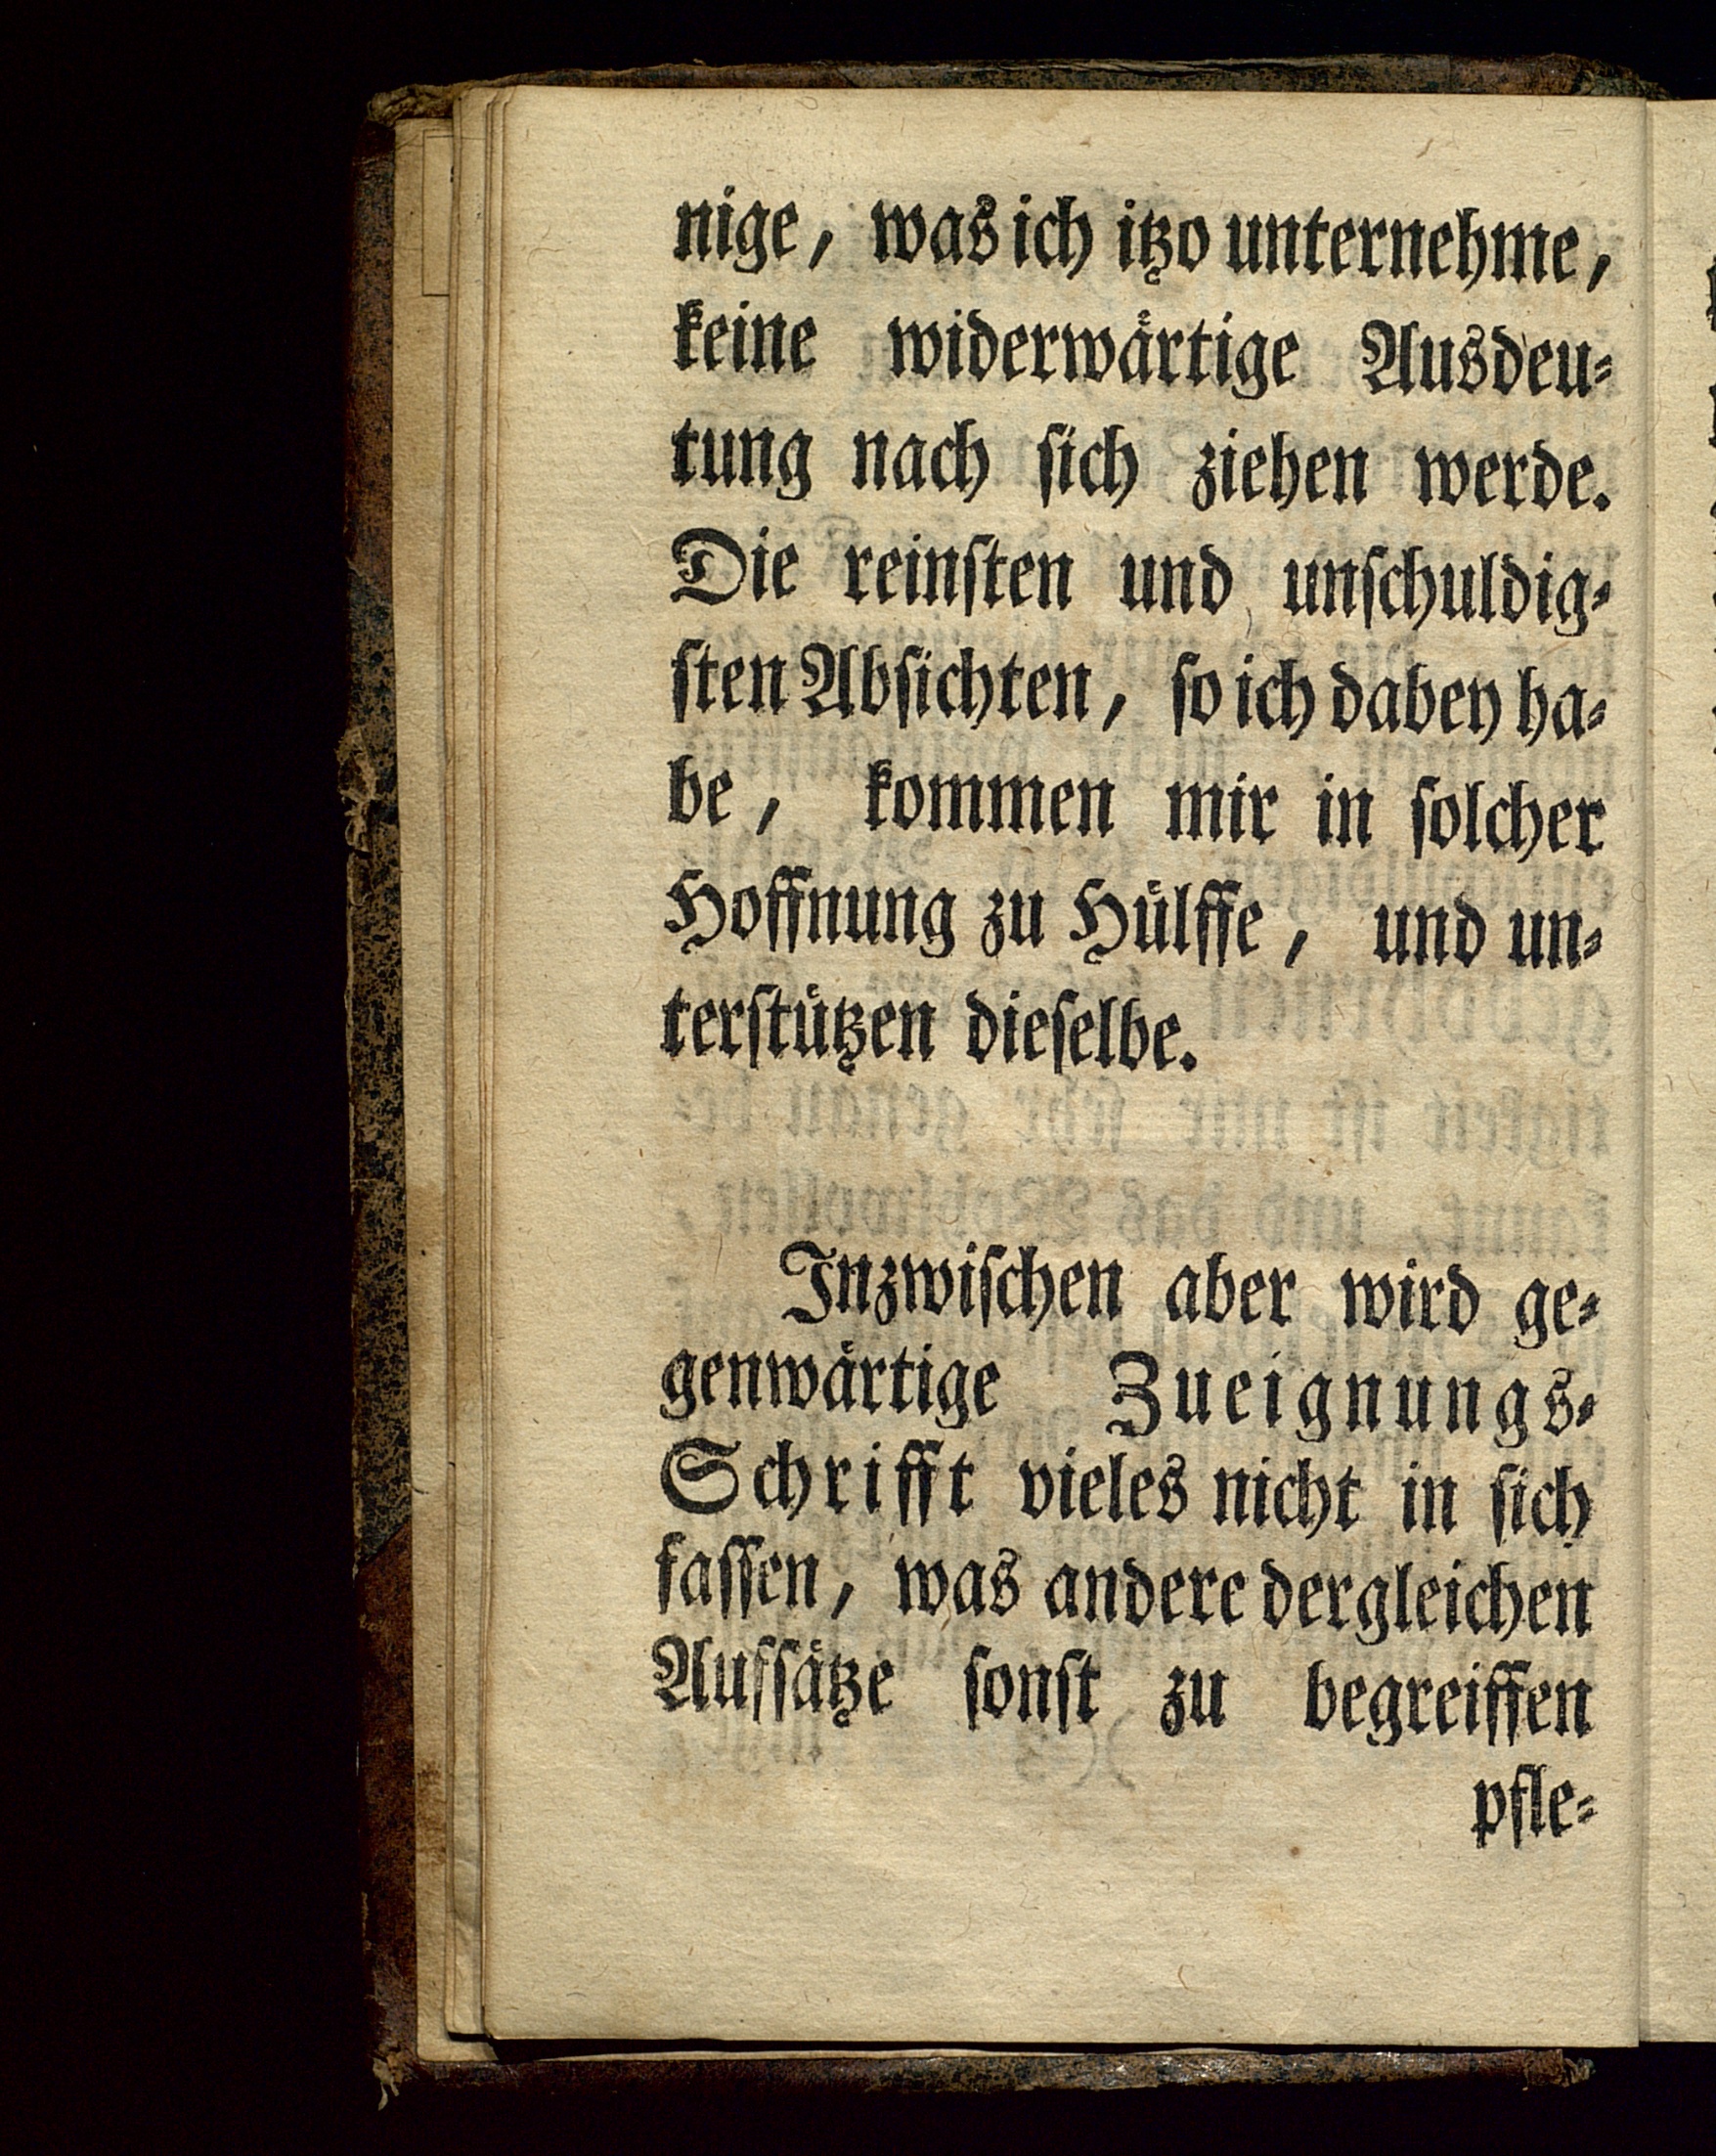 nige, was ich itzo unternehme,
keine widerwärtige Ausdeu-
tung nach sich ziehen werde.
Die reinsten und unschuldig-
sten Absichten, so ich dabey ha-
be, kommen mir in solcher
Hoffnung zu Hülffe, und un-
terstützen dieselbe.
Inzwischen aber wird ge-
genwärtige Zueignungs-
Schrifft vieles nicht in sich
fassen, was andere dergleichen
Aufsätze sonst zu begreiffen
pfle-